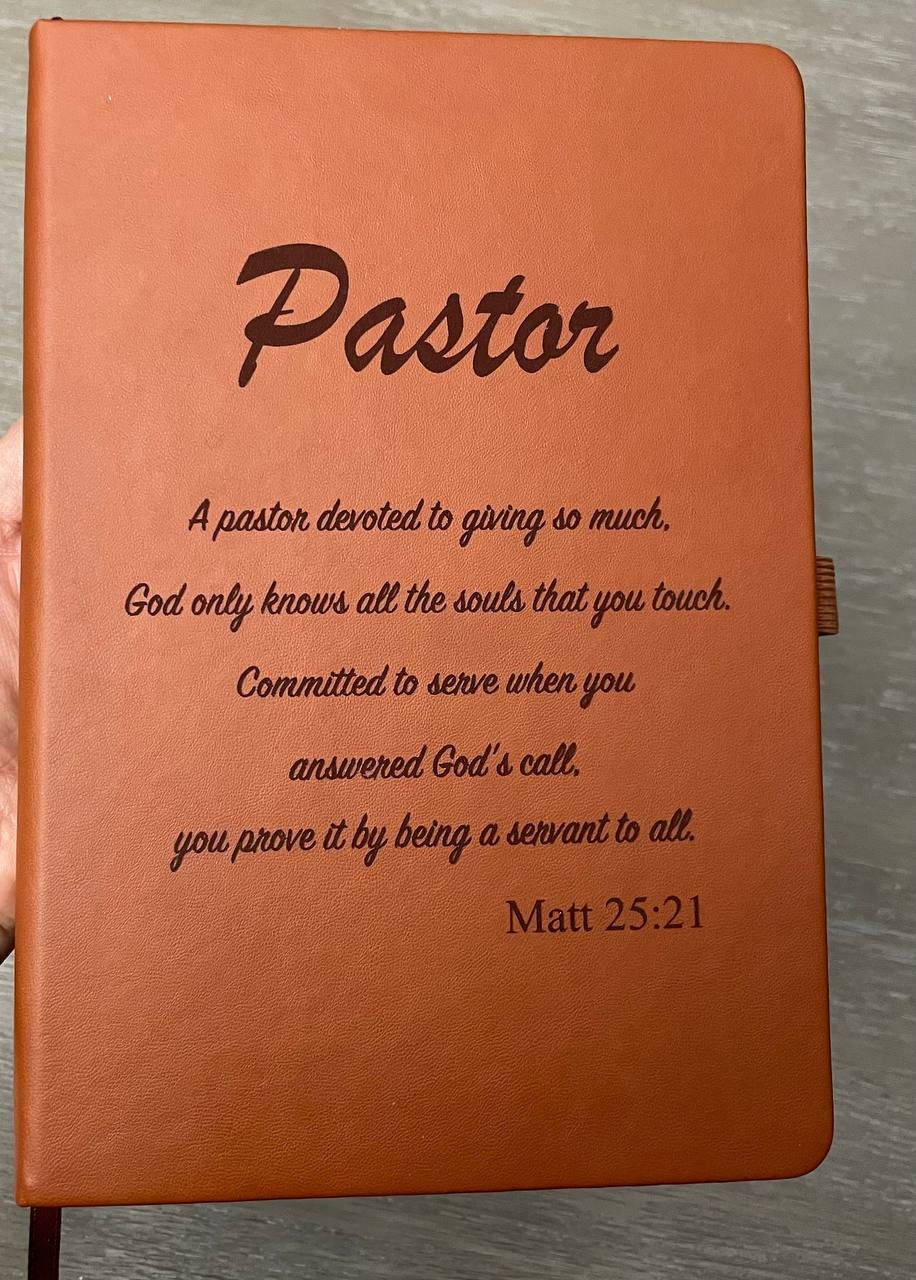 Pastor
A pastor devoted to giving so much,
God only knows all the souls that you touch.
Committed to serve when you
answered God's call,
you prove it by being a servant to all.
Matt 25:21